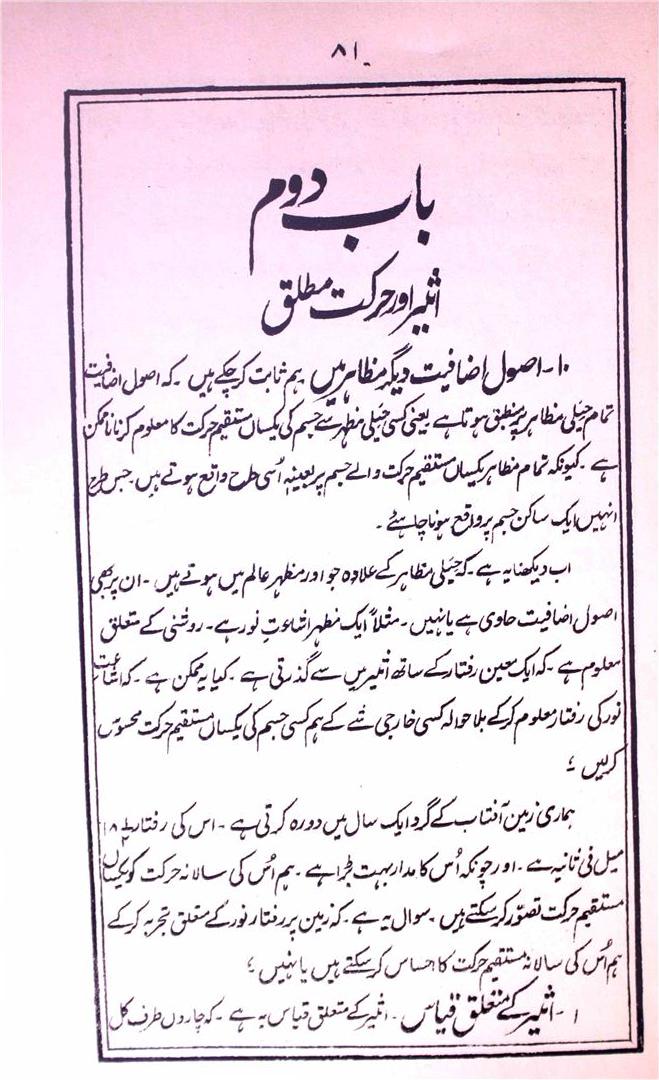 ۸۱
باب دوم
اثیر اور حرکت مطلق
۱۰- اصول اضافیت دیگر مظاہر میں ہم ثابت کر چکے ہیں ۔ کہ اصول اضافیت
تمام حیَلی مظاہر پر منطبق ہوتا ہے یعنی کسی حیَلی مظہر سے جسم کی یکساں مستقیم حرکت کا معلوم کرنا ناممکن
ہے ۔ کیونکہ تمام مظاہر یکساں مستقیم حرکت والے جسم پر بعینہٖ اُسی طرح واقع ہوتے ہیں ۔ جس طرح
انہیں ایک ساکن جسم پر واقع ہونا چاہئے ۔
اب دیکھنا یہ ہے ۔ کہ حیَلی مظاہر کے علاوہ جو اور مظہر عالم میں ہوتے ہیں ۔ ان پر بھی
اصول اضافیت حاوی ہے یا نہیں ۔ مثلاً ایک مظہر اشاعتِ نور ہے ۔ روشنی کے متعلق
معلوم ہے ۔ کہ ایک معین رفتار کے ساتھ اثیر میں سے گذرتی ہے ۔ کیا یہ ممکن ہے ۔ کہ اشاعت
نور کی رفتار معلوم کر کے بلا حوالہ کسی خارجی شے کے ہم کسی جسم کی یکساں مستقیم حرکت محسوس
کر لیں ؟
ہماری زمین آفتاب کے گرد ایک سال میں دورہ کرتی ہے ۔ اس کی رفتار ۱۸½
میل فی ثانیہ ہے ۔ اور چونکہ اُس کا مدار بہت بڑا ہے ۔ ہم اُس کی سالانہ حرکت کو یکساں
مستقیم حرکت تصوّر کر سکتے ہیں ۔ سوال یہ ہے ۔ کہ زمین پر رفتار نور کے متعلق تجربہ کر کے
ہم اُس کی سالانہ مستقیم حرکت کا احساس کر سکتے ہیں یا نہیں ؟
۱- اثیر کے متعلق قیاس ۔ اثیر کے متعلق قیاس یہ ہے ۔ کہ چاروں طرف کل